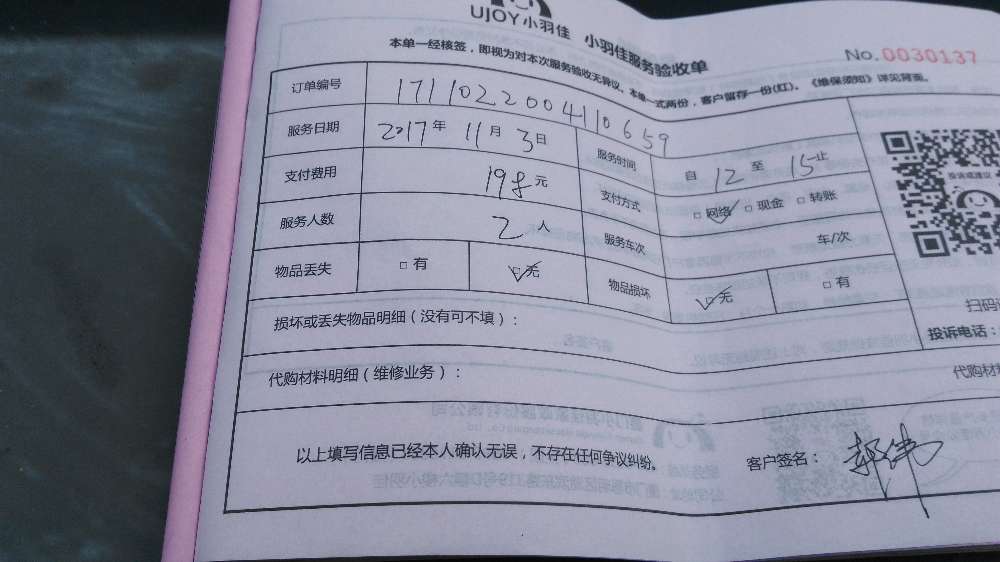 UJOY小羽佳 小羽佳服务验收单
No.0030137
本单一经核签，即视为对本次服务验收无异议。本单一式两份，客户留存一份(红)。《维保须知》详见背面。
订单编号 1711022004110659
服务日期 2017年 11月 3日 服务时间 自 12 至 15止
支付费用 198元 支付方式 □网络 □现金 □转账
服务人数 2人 服务车次 车/次
物品丢失 □有 □无 物品损坏 □无 □有
投诉或建议
损坏或丢失物品明细（没有可不填）：
扫码
投诉电话：
代购材料明细（维修业务）：
代购材料
以上填写信息已经本人确认无误，不存在任何争议纠纷。 客户签名：